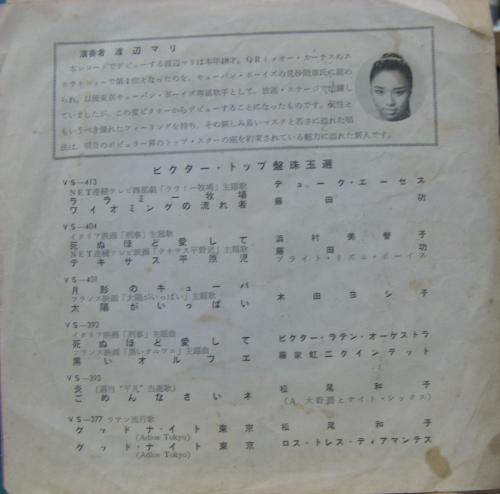 演奏者 渡辺マリ
本レコードでデビューする渡辺マリは本年18才。QRミッキー・カーチスのス
ステキショーで第1位となったのを、キューバン・ボーイズの見砂
られ、以後東京キューバン・ボーイズ専属歌手として、放送・ステージで活躍し
ていましたが、この度ビクターからデビューすることになったものです。個性と
もいうべき優れたフィーリングを持ち、その親しみ易いマスクと若さに溢れた唱
法は、明日のポピュラー界のトップ・スターの座を約束されている魅力に溢れた新人です。
ビクター・トップ盤珠玉選
VS—413
NET連続テレビ西部劇「ララミー牧場」主題歌
ララミー牧場 デューク・エーセス
ワイオミングの流れ者 藤田功
VS—404
イタリア映画「刑事」主題歌
死ぬほど愛して 浜村美智子
NET連続テレビ映画「テキサス平原児」主題歌 藤田功
テキサス平原児 ブライト・リズム・ボーイズ
VS—401
月影のキューバ
フランス映画「太陽がいっぱい」主題歌 木田ヨシ子
太陽がいっぱい
VS—392
イタリア映画「刑事」主題曲
死ぬほど愛して ビクター・ラテン・オーケストラ
フランス映画「黒いオルフェ」主題曲
黒いオルフェ 藤家虹二クインテット
VS—393
炎(週刊"平凡"当選歌) 松尾和子
ごめんなさいネ (A. 大野 とナイト・シックス)
VS—377 ラテン流行歌
グッド・ナイト東京 松尾和子
(Adios Tokyo)
グッド・ナイト東京 ロス・トレス・ディアマンテス
(Adios Tokyo)